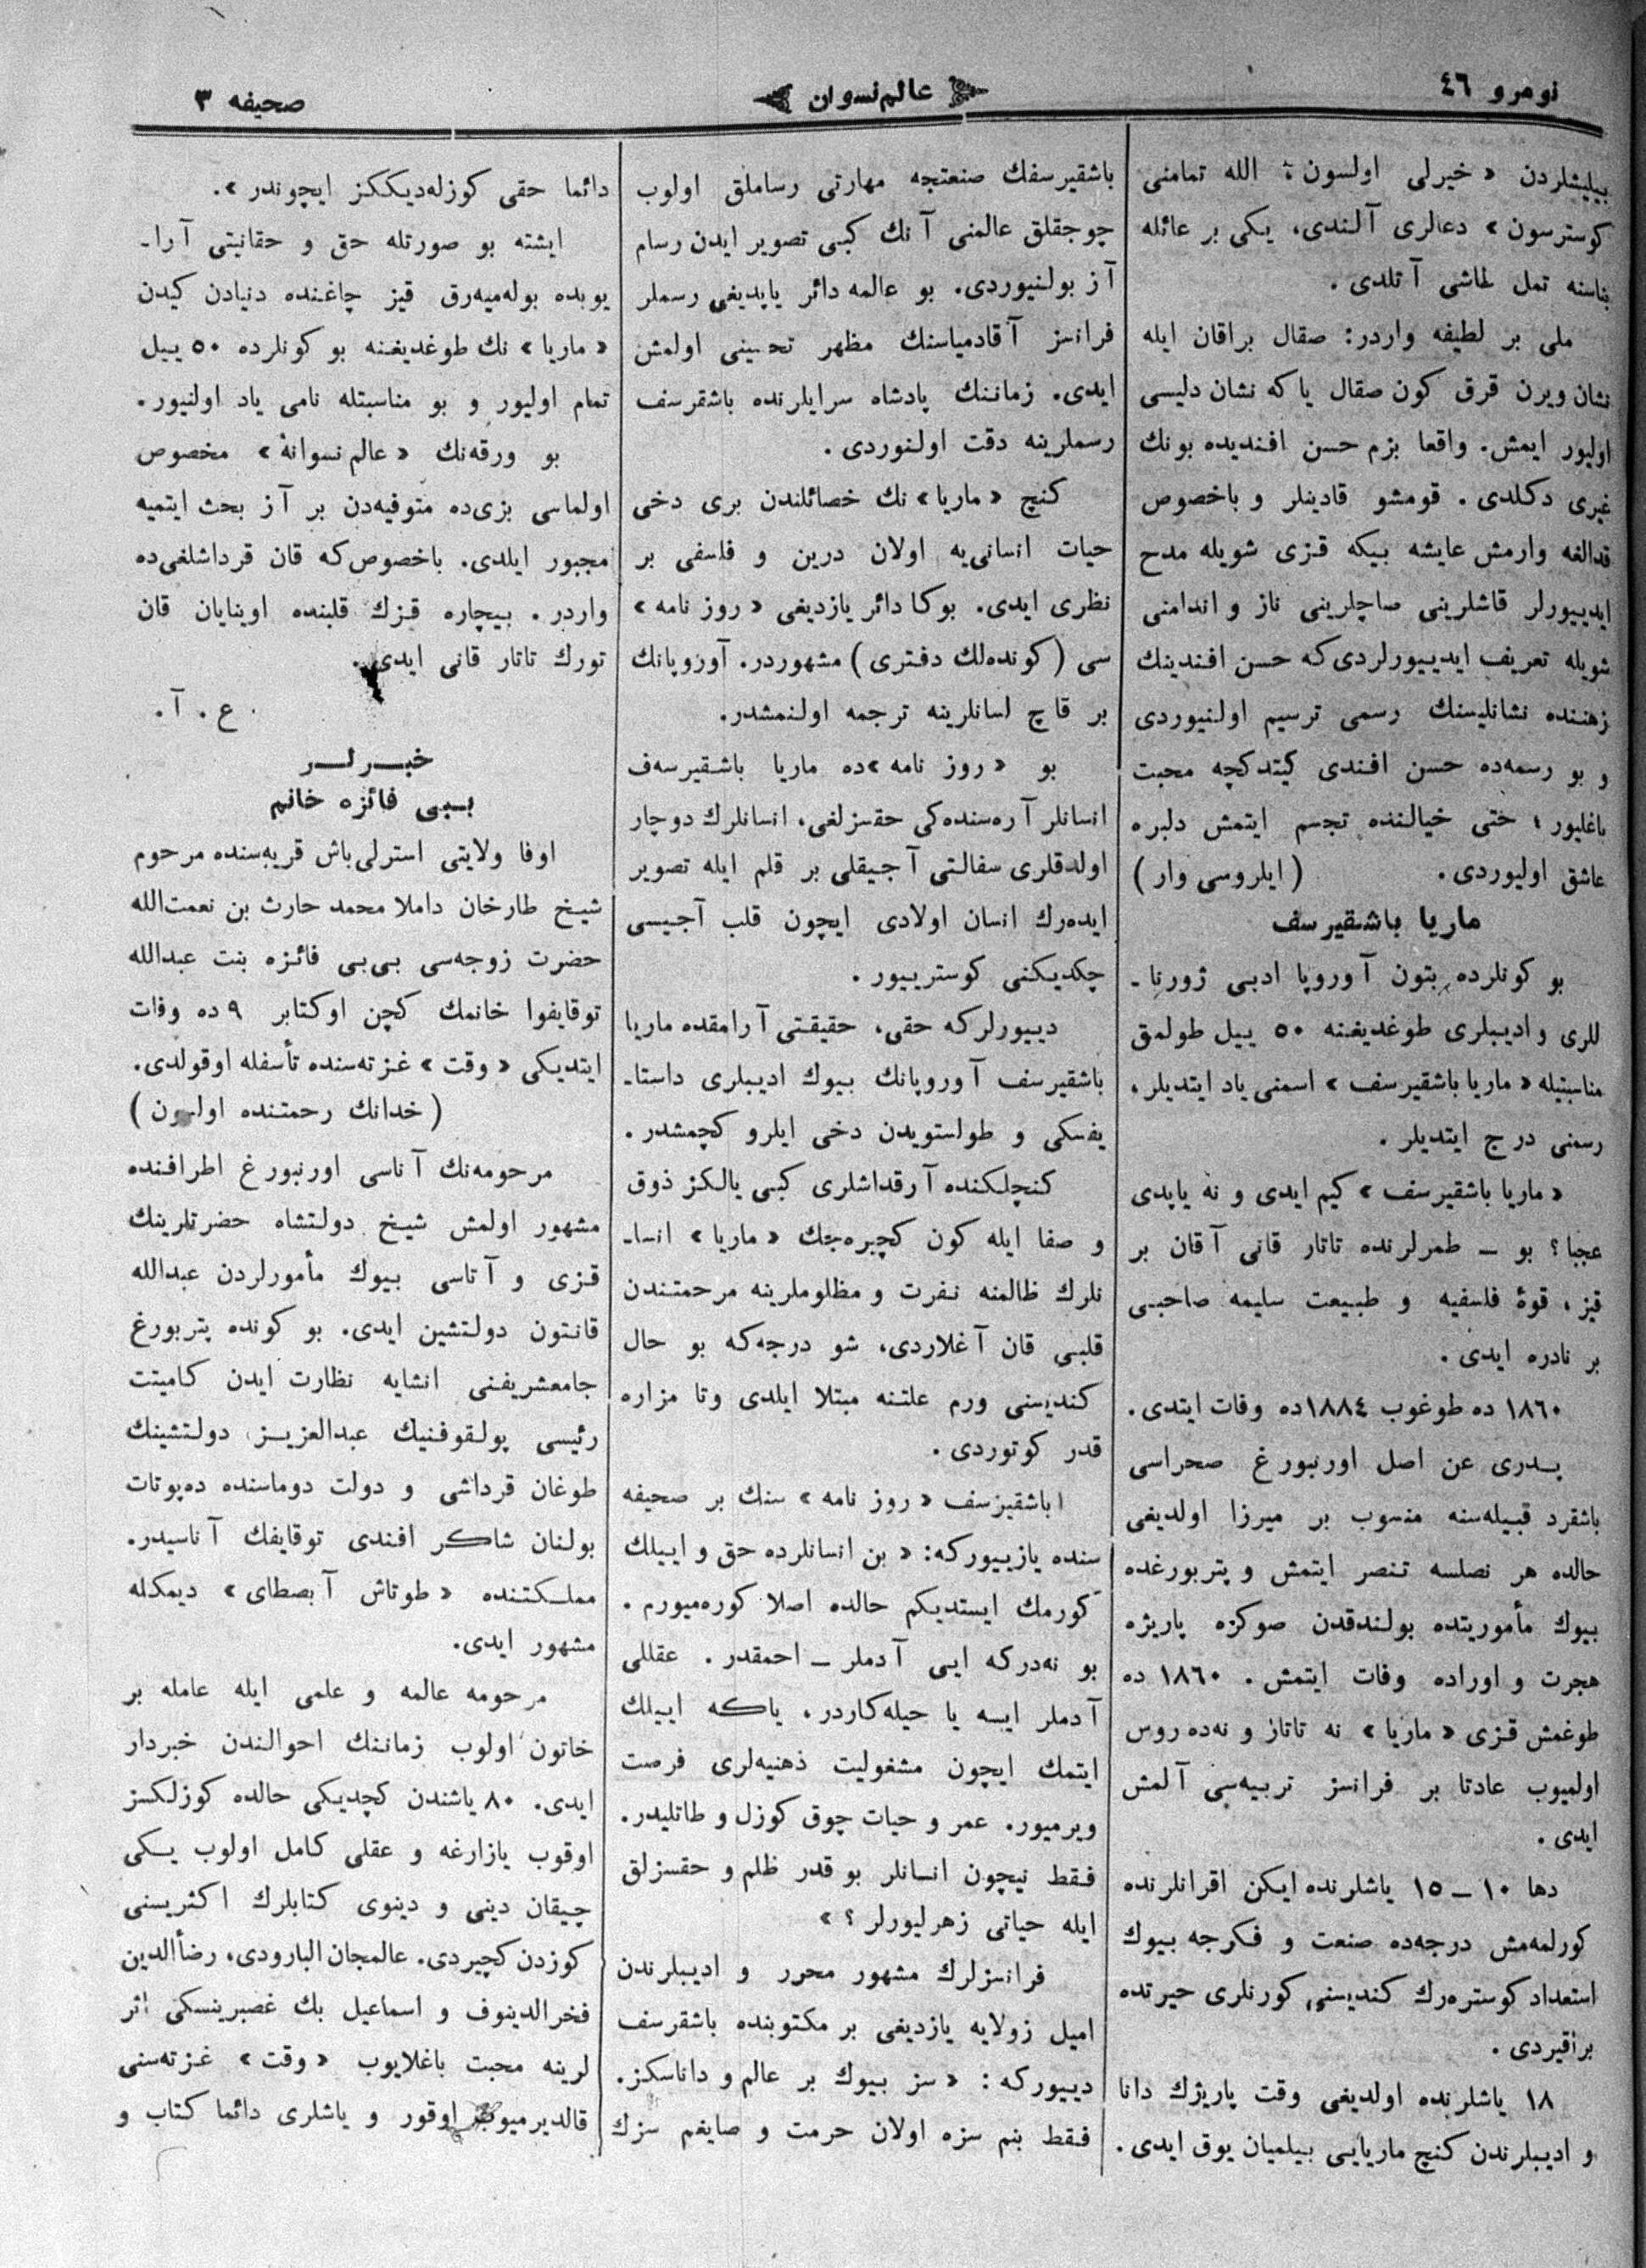 نومرو ٤٦
عالم نسوان
صحیفه ٣
بیلیشلردن « خیرلی اولسون ؛ الله تمامنی
کوسترسون » دعالری آلندی، یکی بر عائله
بناسنه تمل طاشی آتلدی .
ملی بر لطیفه واردر: صقال براقان ایله
نشان ویرن قرق کون صقال یا که نشان دلیسی
اولیور ایمش. واقعا بزم حسن افندیده بونك
غیری دکلدی . قومشو قادینلر و باخصوص
قدالغه وارمش عایشه بیکه قزی شویله مدح
ایدییورلر قاشلرینی صاچلرینی ناز و اندامنی
شویله تعریف ایدییورلردی که حسن افندینك
زهننده نشانلیسنك رسمی ترسیم اولنیوردی
و بو رسمه‌ده حسن افندی کیتدکچه محبت
باغلیور ؛ حتی خیالنده تجسم ایتمش دلبره
عاشق اولیوردی . ( ایلروسی وار )
ماریا باشقیرسف
بو کونلرده بتون آوروپا ادبی ژورنا ـ
للری و ادیبلری طوغدیغنه ٥٠ ییل طولمق
مناسبتیله « ماریا باشقیرسف » اسمنی یاد ایتدیلر ،
رسمنی درج ایتدیلر .
« ماریا باشقیرسف » کیم ایدی و نه یاپدی
عجبا ؟ بو ـ طمرلرنده تاتار قانی آقان بر
قیز ، قوۀ فلسفیه و طبیعت سلیمه صاحبی
بر نادره ایدی .
١٨٦٠ ده طوغوب ١٨٨٤ده وفات ایتدی .
پدری عن اصل اورنبورغ صحراسی
باشقرد قبیله‌سنه منسوب بر میرزا اولدیغی
حالده هر نصلسه تنصر ایتمش و پتربورغده
بیوك مأموریتده بولندقدن صوکره پاریژه
هجرت و اوراده وفات ایتمش . ١٨٦٠ ده
طوغمش قزی « ماریا » نه تاتار و نه‌ده روس
اولمیوب عادتا بر فرانسز تربیه‌سی آلمش
ایدی .
دها ١٠ ـ ١٥ یاشلرنده ایکن اقرانلرنده
کورلمه‌مش درجه‌ده صنعت و فکرجه بیوك
استعداد کوستره‌رك کندیسنی کورنلری حیرتده
براقیردی .
١٨ یاشلرنده اولدیغی وقت پاریژك دانا
و ادیبلرندن کنچ ماریایی بیلمیان یوق ایدی .
باشقیرسفك صنعتجه مهارتی رساملق اولوب
چوجقلق عالمنی آنك کبی تصویر ایدن رسام
آز بولنیوردی. بو عالمه دائر یاپدیغی رسملر
فرانسز آقادمیاسنك مظهر تحسینی اولمش
ایدی. زماننك پادشاه سرایلرنده باشقرسف
رسملرینه دقت اولنوردی .
کنچ « ماریا » نك خصائلندن بری دخی
حیات انسانی‌یه اولان درین و فلسفی بر
نظری ایدی. بوکا دائر یازدیغی « روز نامه »
سی ( کونده‌لك دفتری ) مشهوردر. آوروپانك
بر قاچ لسانلرینه ترجمه اولنمشدر.
بو « روز نامه »ده ماریا باشقیرسه‌ف
انسانلر آره‌سنده‌کی حقسزلغی ، انسانلرك دوچار
اولدقلری سفالتی آجیقلی بر قلم ایله تصویر
ایده‌رك انسان اولادی ایچون قلب آجیسی
چکدیکنی کوسترییور .
دییورلرکه حقی ، حقیقتی آرامقده ماریا
باشقیرسف آوروپانك بیوك ادیبلری داستا ـ
یفسکی و طولستویدن دخی ایلرو کچمشدر .
کنچلکنده آرقداشلری کبی یالکز ذوق
و صفا ایله کون کچیره‌جك « ماریا » انسا ـ
نلرك ظالمنه نفرت و مظلوملرینه مرحمتندن
قلبی قان آغلاردی ، شو درجه‌که بو حال
کندیسنی ورم علتنه مبتلا ایلدی وتا مزاره
قدر کوتوردی .
باشقیزسف « روز نامه » سنك بر صحیفه
سنده یازییورکه: « بن انسانلرده حق و اییلك
کورمك ایستدیکم حالده اصلا کوره‌میورم .
بو نه‌درکه ایی آدملر ـ احمقدر . عقللی
آدملر ایسه یا حیله‌کاردر ، یاکه اییلك
ایتمك ایچون مشغولیت ذهنیه‌لری فرصت
ویرمیور. عمر و حیات چوق کوزل و طاتلیدر.
فقط نیچون انسانلر بو قدر ظلم و حقسزلق
ایله حیاتی زهرلیورلر ؟ »
فرانسزلرك مشهور محرر و ادیبلرندن
امیل زولایه یازدیغی بر مکتوبنده باشقرسف
دییورکه : « سز بیوك بر عالم و داناسکز.
فقط بنم سزه اولان حرمت و صایغم سزك
دائما حقی کوزله‌دیککز ایچوندر » .
ایشته بو صورتله حق و حقانیتی آرا ـ
یوبده بوله‌میه‌رق قیز چاغنده دنیادن کیدن
« ماریا » نك طوغدیغنه بو کونلرده ٥٠ ییل
تمام اولیور و بو مناسبتله نامی یاد اولنیور.
بو ورقه‌نك « عالم نسوانه » مخصوص
اولماسی بزی‌ده متوفیه‌دن بر آز بحث ایتمیه
مجبور ایلدی. باخصوص‌که قان قرداشلغی‌ده
واردر . بیچاره قزك قلبنده اوینایان قان
تورك تاتار قانی ایدی .
ع . آ .
خبرلر
بیبی فائزه خانم
اوفا ولایتی استرلی‌باش قریه‌سنده مرحوم
شیخ طارخان داملا محمد حارث بن نعمت‌الله
حضرت زوجه‌سی بی‌بی فائزه بنت عبدالله
توقایفوا خانمك کچن اوکتابر ٩ ده وفات
ایتدیکی « وقت » غزته‌سنده تأسفله اوقولدی.
( خدانك رحمتنده اولسون )
مرحومه‌نك آناسی اورنبورغ اطرافنده
مشهور اولمش شیخ دولتشاه حضرتلرینك
قزی و آتاسی بیوك مأمورلردن عبدالله
قانتون دولتشین ایدی. بو کونده پتربورغ
جامعشریفنی انشایه نظارت ایدن کامیتت
رئیسی پولقوفنیك عبدالعزیز دولتشینك
طوغان قرداشی و دولت دوماسنده ده‌پوتات
بولنان شاکر افندی توقایفك آناسیدر.
مملکتنده « طوتاش آبصطای » دیمکله
مشهور ایدی.
مرحومه عالمه و علمی ایله عامله بر
خاتون اولوب زماننك احوالندن خبردار
ایدی. ٨٠ یاشندن کچدیکی حالده کوزلکسز
اوقوب یازارغه و عقلی کامل اولوب یکی
چیقان دینی و دینوی کتابلرك اکثریسنی
کوزدن کچیردی. عالمجان البارودی، رضأالدین
فخرالدینوف و اسماعیل بك غصبرینسکی اثر
لرینه محبت باغلایوب « وقت » غزته‌سنی
قالدیرمیوب اوقور و یاشلری دائما کتاب و